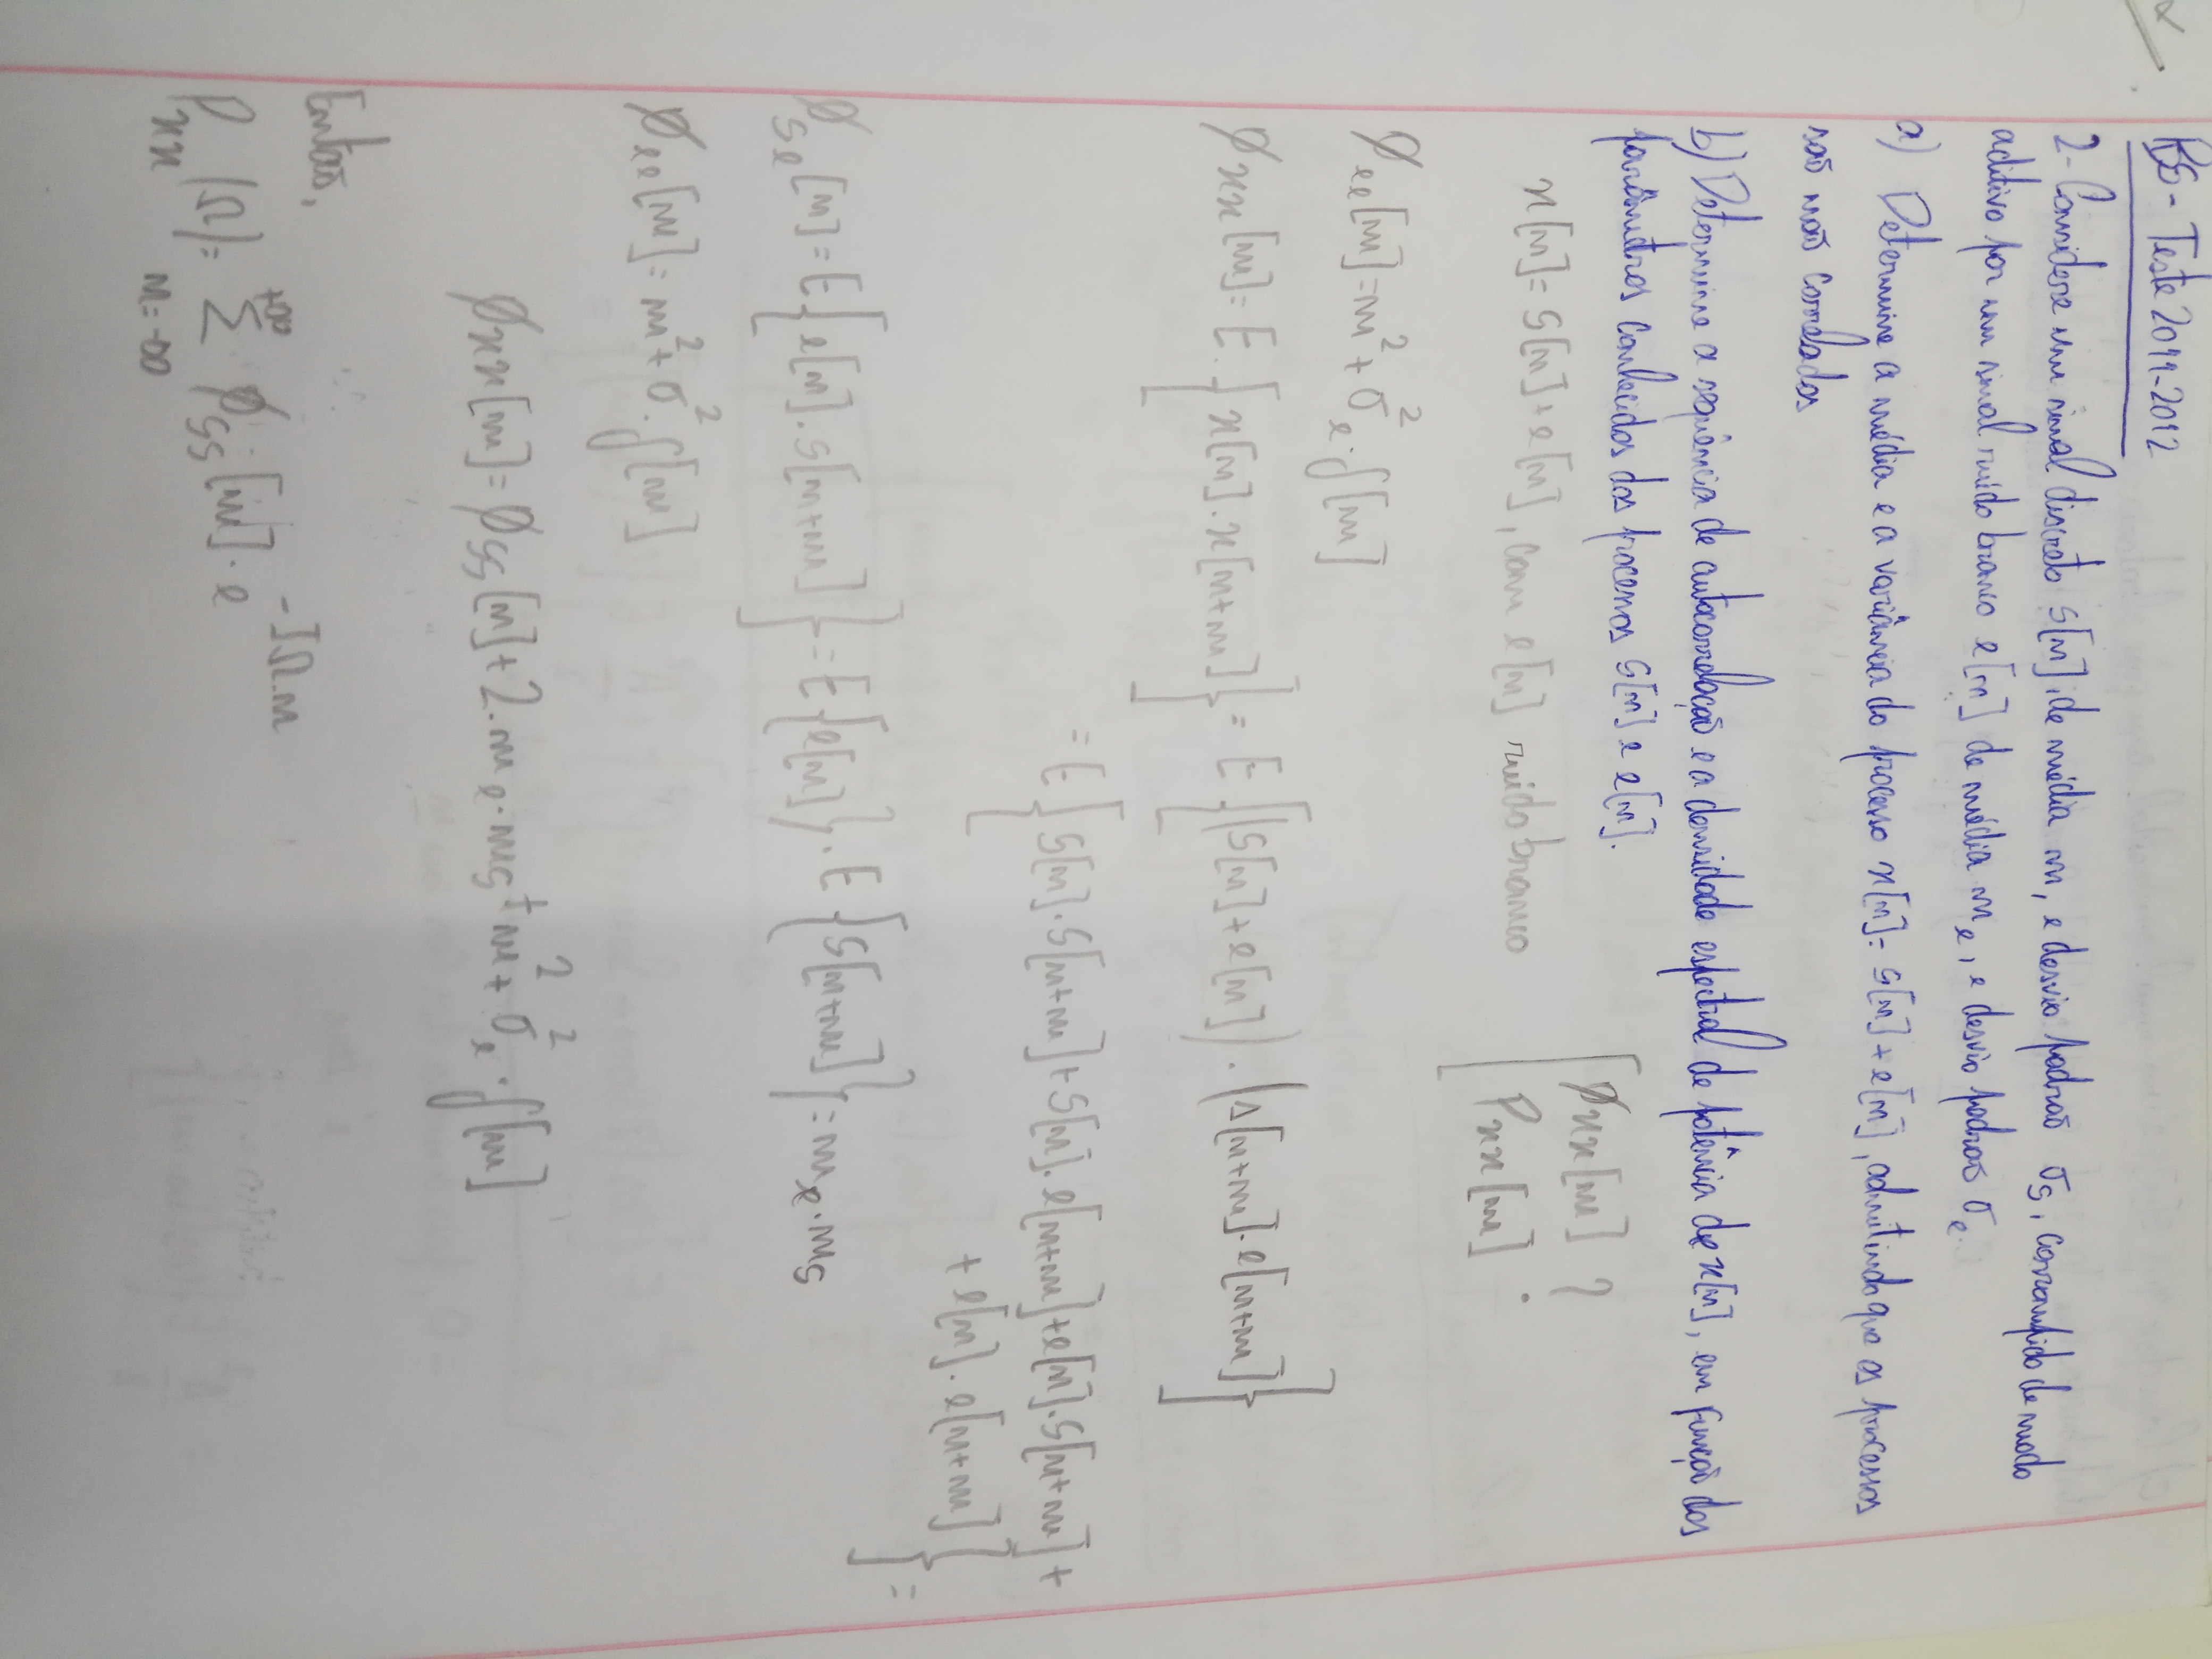 PBS - Teste 2011-2012
2- Considere um sinal discreto s[n], de média m, e desvio padrão σs, corrompido de modo
aditivo por um sinal ruído branco e[n] de média me, e desvio padrão σe.
a) Determine a média e a variância do processo x[n]= s[n]+e[n], admitindo que os processos
são não correlados
b) Determine a sequência de autocorrelação e a densidade espectral de potência de x[n], em função dos
parâmetros conhecidos dos processos s[n] e e[n].
x[n]= s[n]+e[n], com e[n] ruido branco
[ øxx[m] ?
Pxx[m]
øee[m]=m²+σe².δ[m]
øxx[m]= E.{x[n].x[n+m]} = E{(s[n]+e[n]).(s[n+m].e[n+m]}
= E{s[n].s[n+m]+s[n].e[n+m]+e[n].s[n+m]+
+ e[n].e[n+m]}=
øse[n]=E{e[n].s[n+m]}=E{e[n]}.E{s[n+m]}=me.ms
øee[m]= m²+σ².δ[m]
øxx[m]=øss[n]+2.me.ms+m²+σe².δ[m]
Então,
Pxx(Ω)= +∞ Σ m=-∞ øss[m].e^-JΩ.m